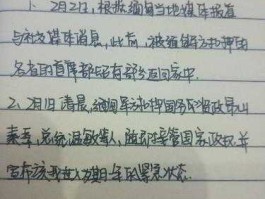 1、2月2日,根据缅甸当地媒体报道
与社交媒体消息,此前,被缅甸军方扣押的
各省的首席部长已有部分返回家中.
2、2月1日清晨,缅甸军方扣押国务资政昂山
素季,总统温敏等人,随即接管国家政权,并
宣布该国进入为期一年的紧急状态.